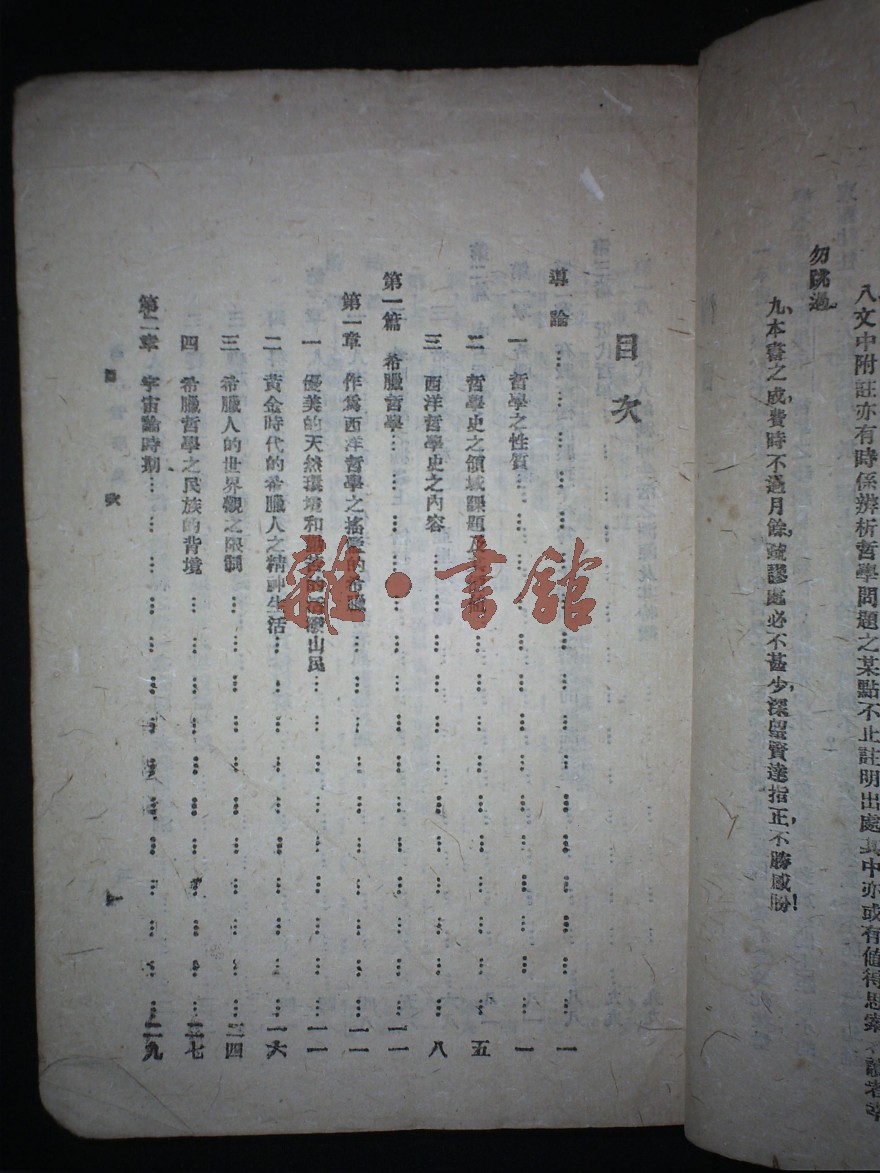 八、文中附註亦有時係辨析哲學問題之某點不止註明出處其中亦或有値得思索
勿跳過。
九、本書之成，費時不過月餘，疏謬處必不甚少，深望賢達指正，不勝感盼！
目次
導論 一
一 哲學之性質 一
二 哲學史之領域課題及 五
三 西洋哲學史之內容 八
第一篇 希臘哲學 一一
第一章 作爲西洋哲學之搖籃的希臘 一一
一 優美的天然環境和 山民 一一
二 黃金時代的希臘人之精神生活 一六
三 希臘人的世界觀之限制 二四
四 希臘哲學之民族的背境 二七
第二章 宇宙論時期 二九
目次
一
雜·書館